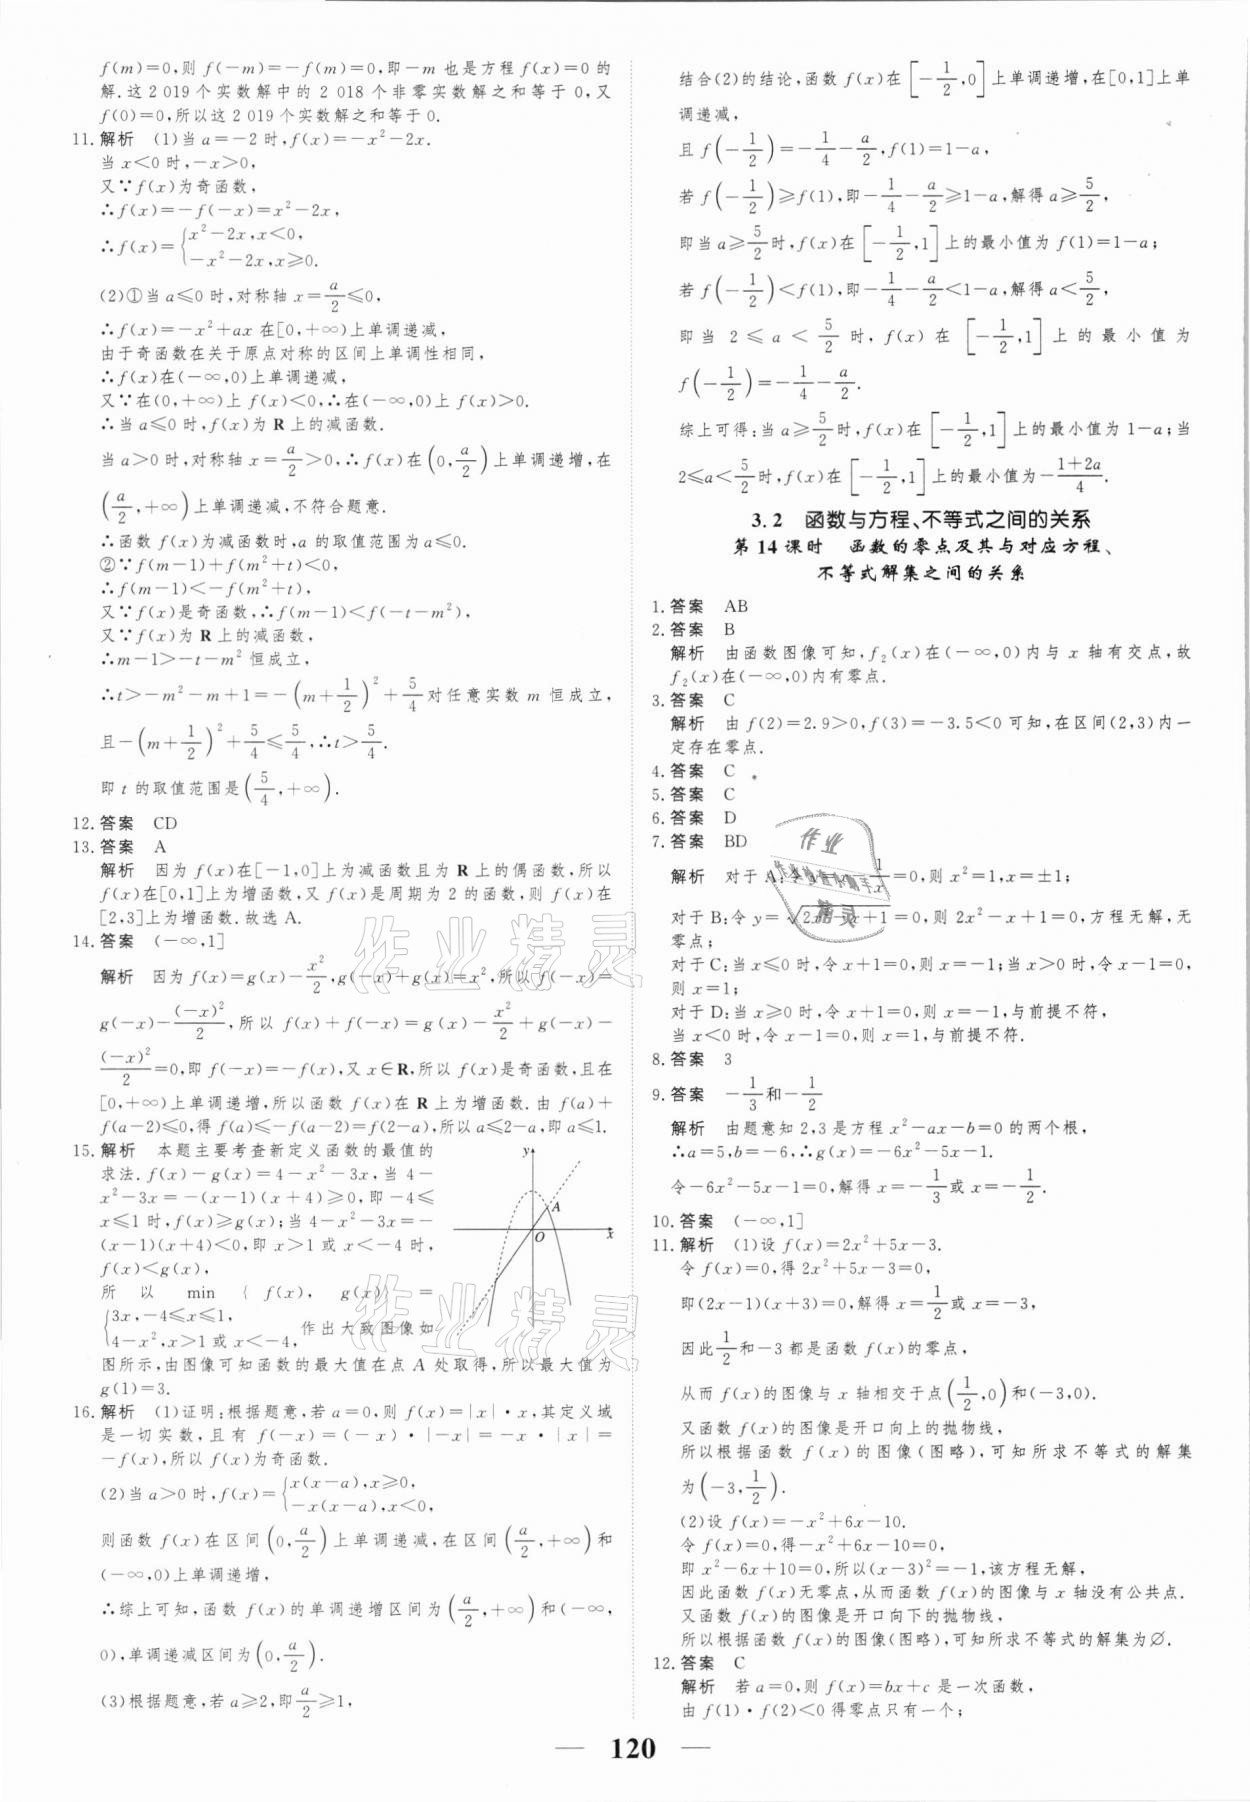 f(m)=0,则 f(-m)=-f(m)=0,即-m 也是方程 f(x)=0 的
解.这 2 019 个实数解中的 2 018 个非零实数解之和等于 0,又
f(0)=0,所以这 2 019 个实数解之和等于 0.
11. 解析 (1)当 a=-2 时,f(x)=-x²-2x.
当 x<0 时,-x>0,
又∵f(x)为奇函数,
∴f(x)=-f(-x)=x²-2x,
∴f(x)={x²-2x,x<0,
-x²-2x,x≥0.
(2)①当 a≤0 时,对称轴 x=a/2≤0,
∴f(x)=-x²+ax 在[0,+∞)上单调递减,
由于奇函数在关于原点对称的区间上单调性相同,
∴f(x)在(-∞,0)上单调递减,
又∵在(0,+∞)上 f(x)<0,∴在(-∞,0)上 f(x)>0.
∴当 a≤0 时,f(x)为 R 上的减函数.
当 a>0 时,对称轴 x=a/2>0,∴f(x)在(0,a/2)上单调递增,在
(a/2,+∞)上单调递减,不符合题意.
∴函数 f(x)为减函数时,a 的取值范围为 a≤0.
②∵f(m-1)+f(m²+t)<0,
∴f(m-1)<-f(m²+t),
又∵f(x)是奇函数,∴f(m-1)<f(-t-m²),
又∵f(x)为 R 上的减函数,
∴m-1>-t-m² 恒成立,
∴t>-m²-m+1=-(m+1/2)²+5/4对任意实数 m 恒成立,
且-(m+1/2)²+5/4≤5/4,∴t>5/4.
即 t 的取值范围是(5/4,+∞).
12. 答案 CD
13. 答案 A
解析 因为 f(x)在[-1,0]上为减函数且为 R 上的偶函数,所以
f(x)在[0,1]上为增函数,又 f(x)是周期为 2 的函数,则 f(x)在
[2,3]上为增函数.故选 A.
14. 答案 (-∞,1]
解析 因为 f(x)=g(x)-x²/2,g(-x)+g(x)=x²,所以 f(-x)=
g(-x)-(-x)²/2,所以 f(x)+f(-x)=g(x)-x²/2+g(-x)-
(-x)²/2=0,即 f(-x)=-f(x),又 x∈R,所以 f(x)是奇函数,且在
[0,+∞)上单调递增,所以函数 f(x)在 R 上为增函数.由 f(a)+
f(a-2)≤0,得 f(a)≤-f(a-2)=f(2-a),所以 a≤2-a,即 a≤1.
15. 解析 本题主要考查新定义函数的最值的
求法.f(x)-g(x)=4-x²-3x,当 4-
x²-3x=-(x-1)(x+4)≥0,即-4≤
x≤1 时,f(x)≥g(x);当 4-x²-3x=-
(x-1)(x+4)<0,即 x>1 或 x<-4 时,
f(x)<g(x),
所以 min { f(x), g(x)} =
{3x,-4≤x≤1,
4-x²,x>1 或 x<-4, 作出大致图像如
图所示,由图像可知函数的最大值在点 A 处取得,所以最大值为
g(1)=3.
y
A
O
x
16. 解析 (1)证明:根据题意,若 a=0,则 f(x)=|x|·x,其定义域
是一切实数,且有 f(-x)=(-x)·|-x|=-x·|x|=
-f(x),所以 f(x)为奇函数.
(2)当 a>0 时,f(x)={x(x-a),x≥0,
-x(x-a),x<0,
则函数 f(x)在区间(0,a/2)上单调递减,在区间(a/2,+∞)和
(-∞,0)上单调递增,
∴综上可知,函数 f(x)的单调递增区间为(a/2,+∞)和(-∞,
0),单调递减区间为(0,a/2).
(3)根据题意,若 a≥2,即a/2≥1,
结合(2)的结论,函数 f(x)在[-1/2,0]上单调递增,在[0,1]上单
调递减,
且 f(-1/2)=-1/4-a/2,f(1)=1-a,
若 f(-1/2)≥f(1),即-1/4-a/2≥1-a,解得 a≥5/2,
即当 a≥5/2时,f(x)在[-1/2,1]上的最小值为 f(1)=1-a;
若 f(-1/2)<f(1),即-1/4-a/2<1-a,解得 a<5/2,
即当 2≤a<5/2时,f(x)在[-1/2,1]上的最小值为
f(-1/2)=-1/4-a/2.
综上可得:当 a≥5/2时,f(x)在[-1/2,1]上的最小值为 1-a;当
2≤a<5/2时,f(x)在[-1/2,1]上的最小值为-(1+2a)/4.
3.2 函数与方程、不等式之间的关系
第 14 课时 函数的零点及其与对应方程、
不等式解集之间的关系
1. 答案 AB
2. 答案 B
解析 由函数图像可知,f₂(x)在(-∞,0)内与 x 轴有交点,故
f₂(x)在(-∞,0)内有零点.
3. 答案 C
解析 由 f(2)=2.9>0,f(3)=-3.5<0 可知,在区间(2,3)内一
定存在零点.
4. 答案 C
5. 答案 C
6. 答案 D
7. 答案 BD
解析 对于 A:令 1/x=0,则 x²=1,x=±1;
对于 B:令 y=√(2x²-x+1)=0,则 2x²-x+1=0,方程无解,无
零点;
对于 C:当 x≤0 时,令 x+1=0,则 x=-1;当 x>0 时,令 x-1=0,
则 x=1;
对于 D:当 x≥0 时,令 x+1=0,则 x=-1,与前提不符,
当 x<0 时,令 x-1=0,则 x=1,与前提不符.
8. 答案 3
9. 答案 -1/3和-1/2
解析 由题意知 2,3 是方程 x²-ax-b=0 的两个根,
∴a=5,b=-6,∴g(x)=-6x²-5x-1.
令-6x²-5x-1=0,解得 x=-1/3或 x=-1/2.
10. 答案 (-∞,1]
11. 解析 (1)设 f(x)=2x²+5x-3.
令 f(x)=0,得 2x²+5x-3=0,
即(2x-1)(x+3)=0,解得 x=1/2或 x=-3,
因此1/2和-3 都是函数 f(x)的零点,
从而 f(x)的图像与 x 轴相交于点(1/2,0)和(-3,0).
又函数 f(x)的图像是开口向上的抛物线,
所以根据函数 f(x)的图像(图略),可知所求不等式的解集
为(-3,1/2).
(2)设 f(x)=-x²+6x-10.
令 f(x)=0,得-x²+6x-10=0,
即 x²-6x+10=0,所以(x-3)²=-1,该方程无解,
因此函数 f(x)无零点,从而函数 f(x)的图像与 x 轴没有公共点.
又函数 f(x)的图像是开口向下的抛物线,
所以根据函数 f(x)的图像(图略),可知所求不等式的解集为∅.
12. 答案 C
解析 若 a=0,则 f(x)=bx+c 是一次函数,
由 f(1)·f(2)<0 得零点只有一个;
— 120 —
作业精灵
作业精灵
作业
精灵